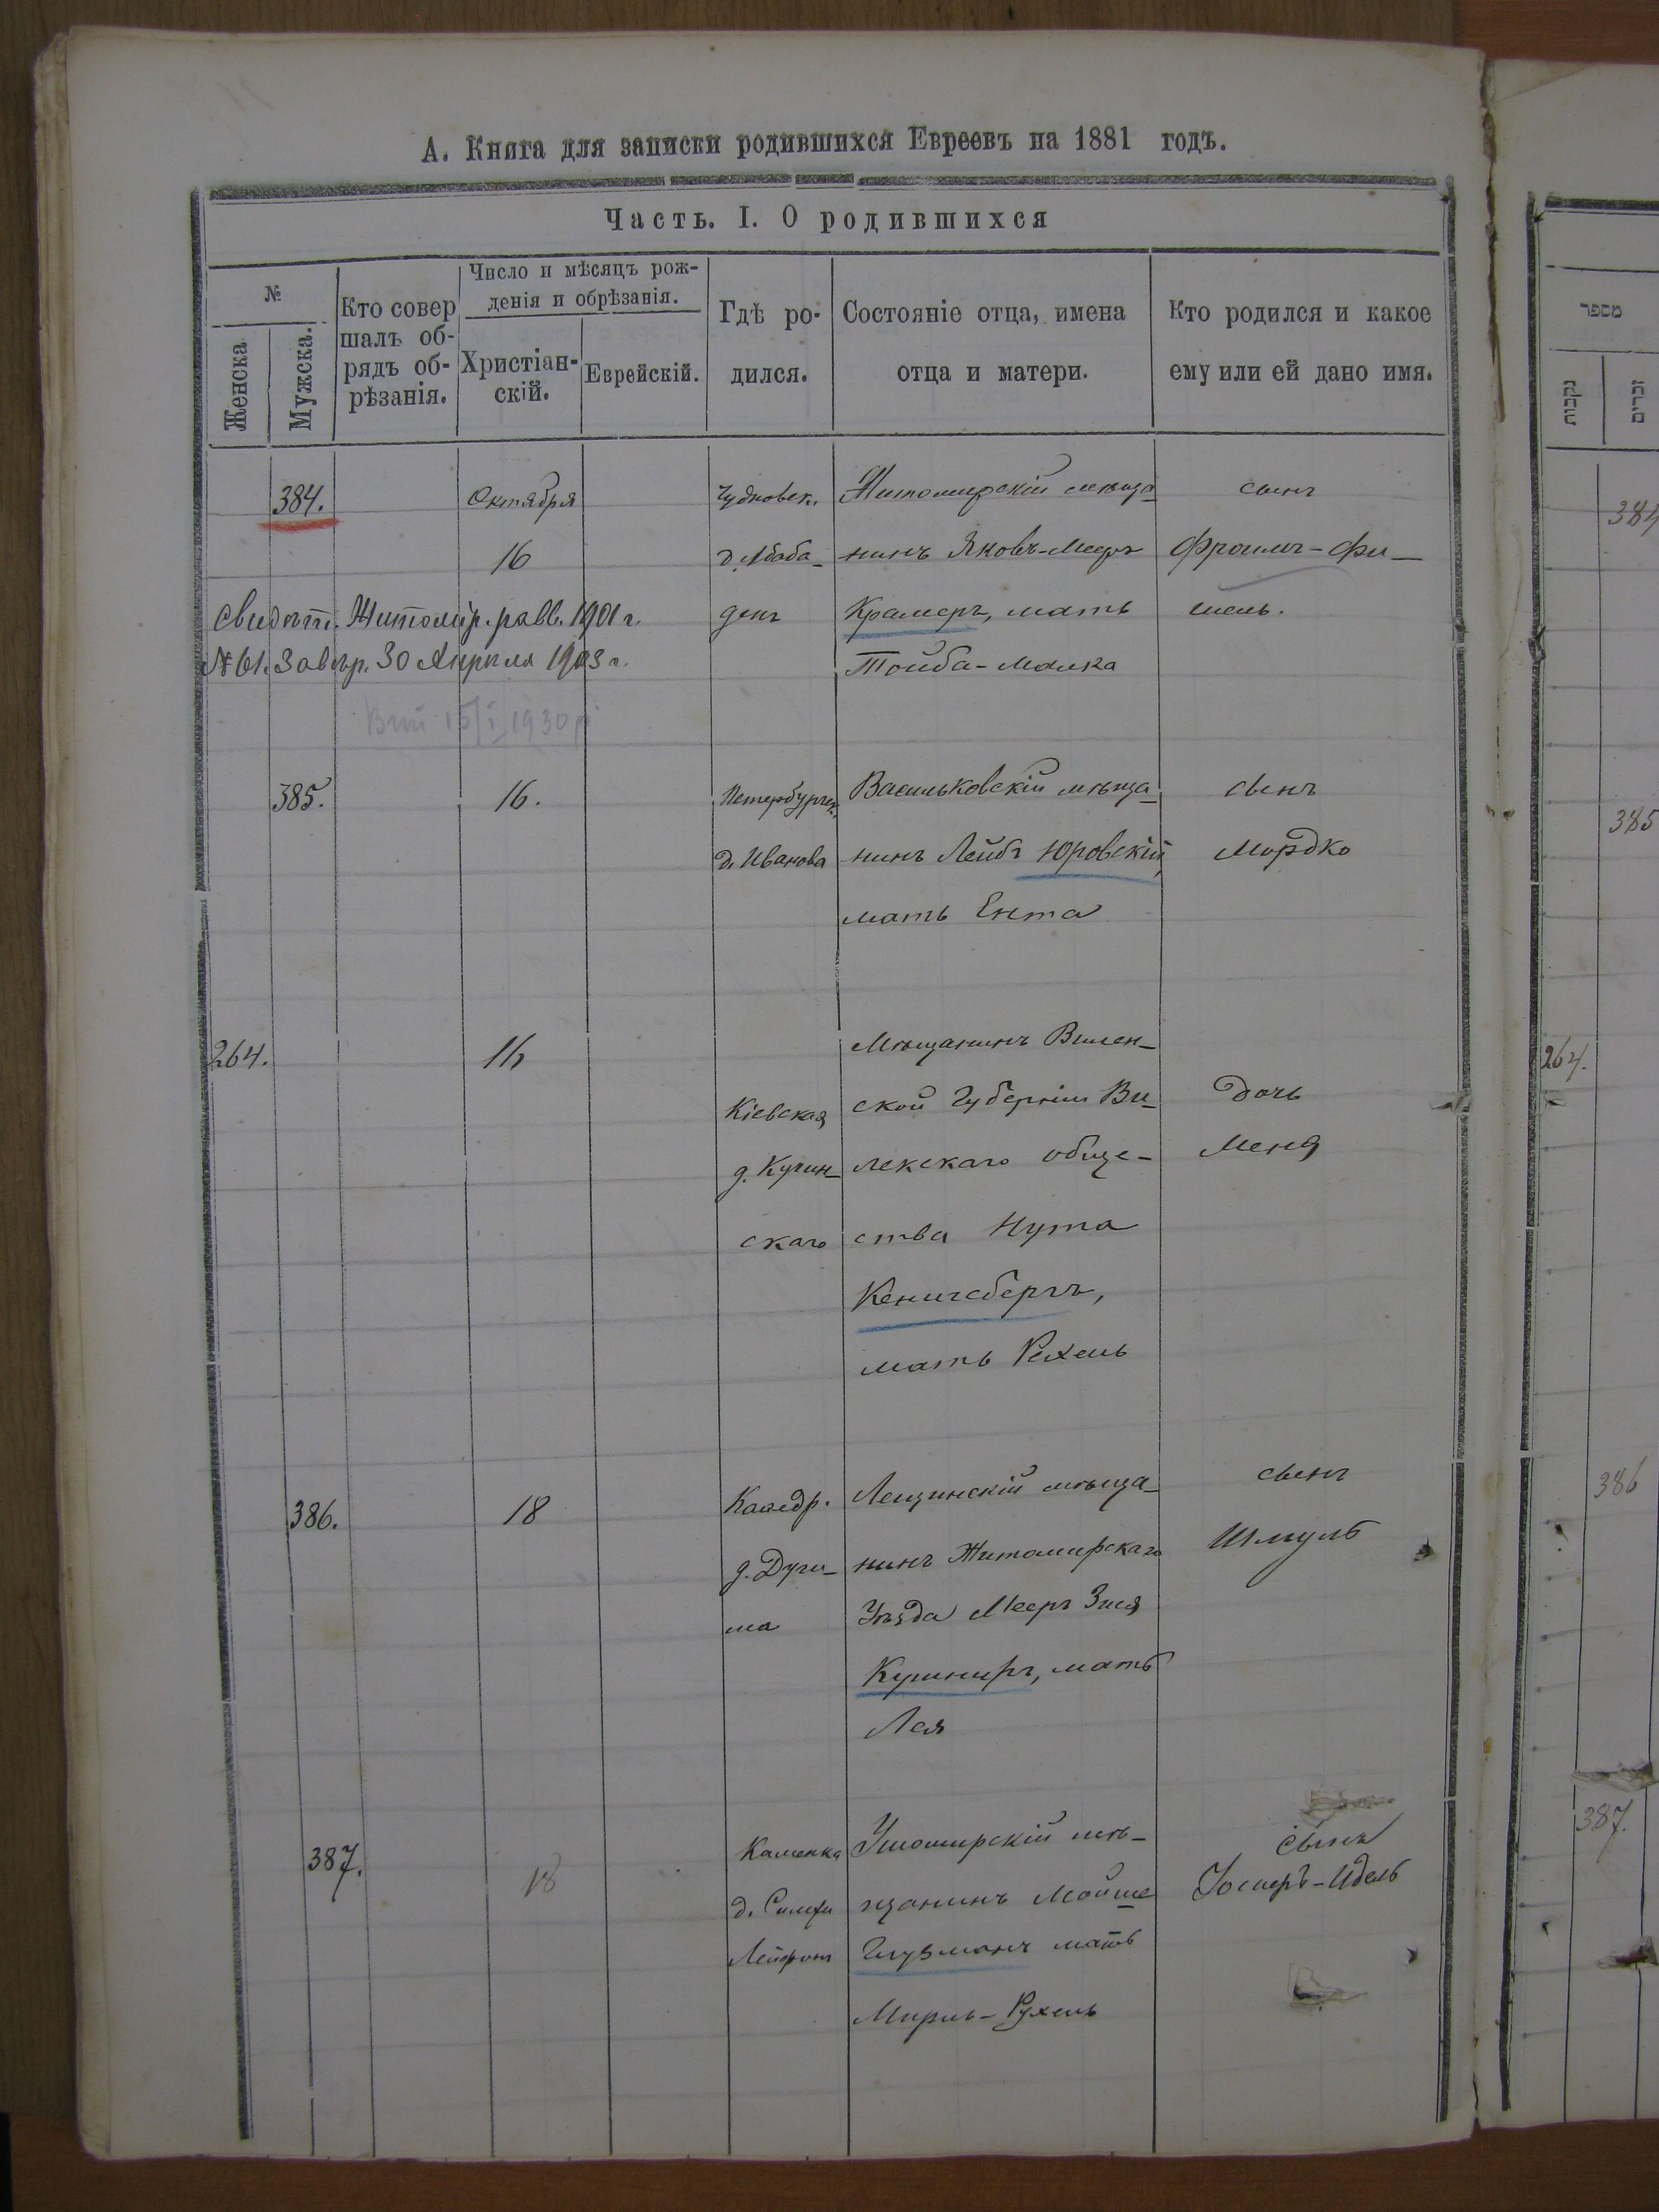 А. Книга для записки родившихся Евреевъ на 1881 годъ.
Часть. I. О родившихся
№
Женска
Мужска.
Кто совер
шалъ об-
рядъ об-
рѣзанія.
Число и мѣсяцъ рож-
денія и обрѣзанія.
Христіан-
скій.
Еврейскій.
Гдѣ ро-
дился.
Состояніе отца, имена
отца и матери.
Кто родился и какое
ему или ей дано имя.
384.
Октября
16
Чудновск.
д. Абаба-
денъ
Житомирскій мѣща-
нинъ Яковъ-Мееръ
Крамеръ, мать
Тойба-Малка
сынъ
Фроимъ-Фи-
шель.
свидѣт. Житомір. равв. 1901 г.
№ 61. Завѣр. 30 Апрѣля 1903 г.
15/I 1930 р
385.
16.
Петербургск.
д. Иванова
Васильковскій мѣща-
нинъ Лейбъ Юровскій,
мать Ента
сынъ
Мордко
264.
16
Кіевская
д. Кучин-
скаго
Мѣщанинъ Вилен-
ской Губерніи Ви-
лекскаго обще-
ства Нута
Кенигсбергъ,
мать Рехель
дочь
Меня
386.
18
Каѳедр.
д. Дуги-
на
Лещинскій мѣща-
нинъ Житомирскаго
Уѣзда Мееръ Зися
Кушниръ, мать
Лея
сынъ
Шмуль
387.
18
Каменка
д. Симхи
Ушомирскій мѣ-
щанинъ Мойше
Глузманъ мать
Мирль-Рухель
сынъ
Іосперъ-Идель
מספר
נקבות
זכרים
384
385
264.
386
387.